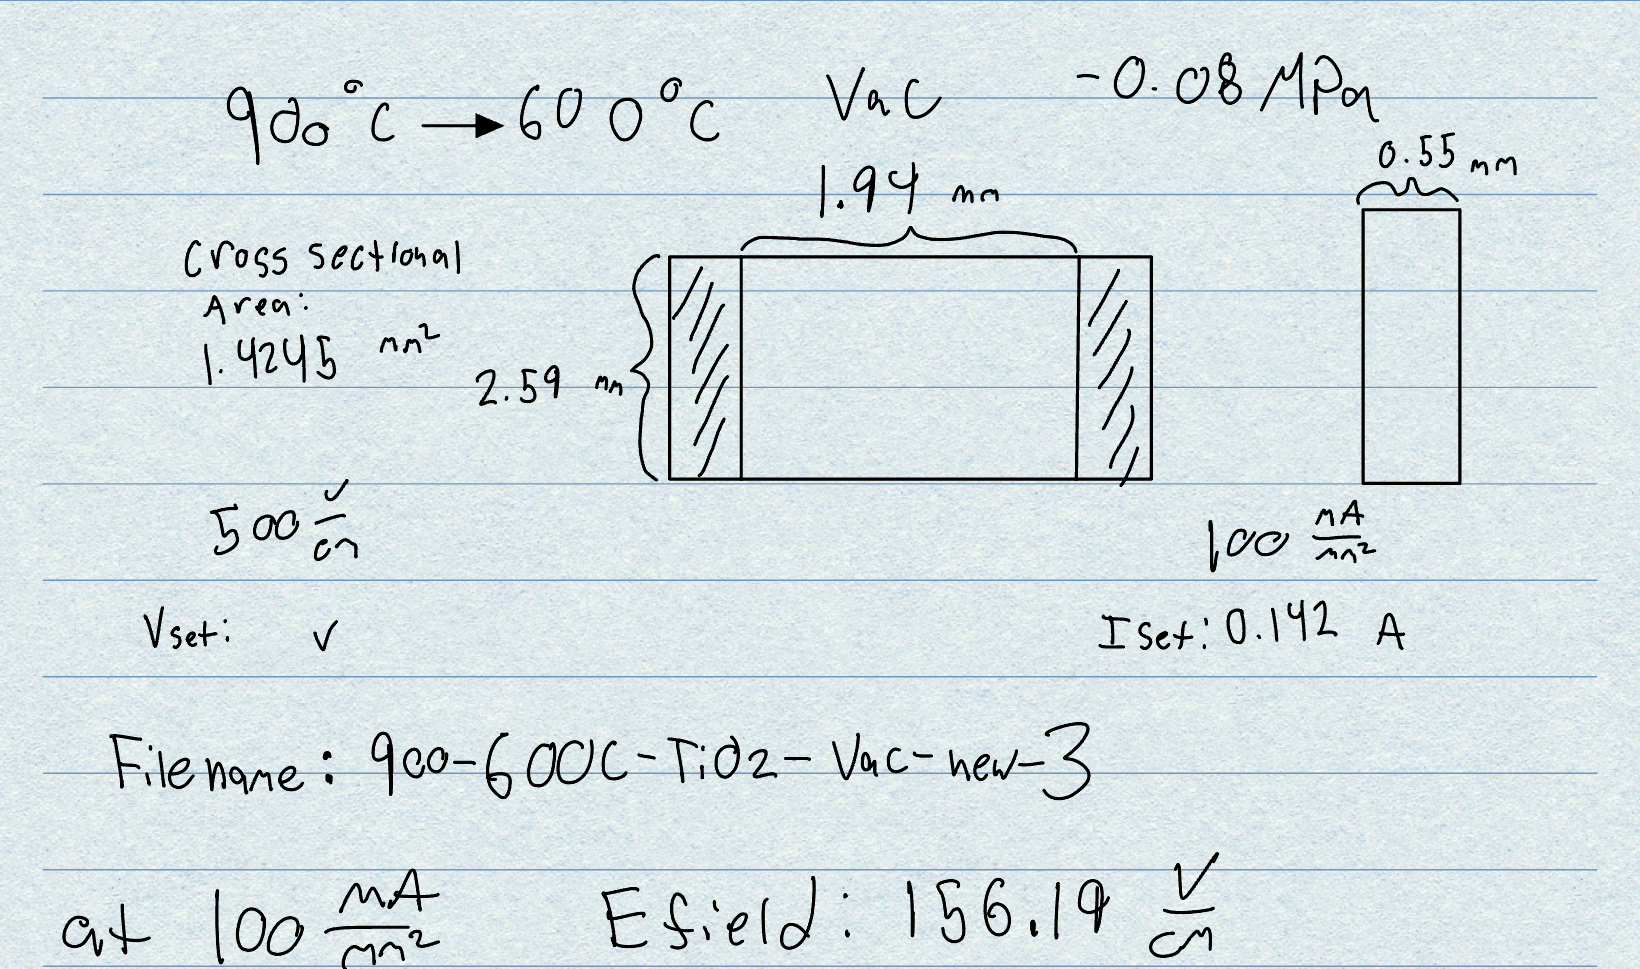 900°C → 600°C Vac -0.08 MPa
0.55 mm
1.94 mm
Cross sectional
Area:
1.4245 mm²
2.59 mm
500 V/cm
100 mA/mm²
Vset: V
Iset: 0.142 A
Filename: 900-600C-TiO2-Vac-new-3
at 100 mA/mm² Efield: 156.19 V/cm